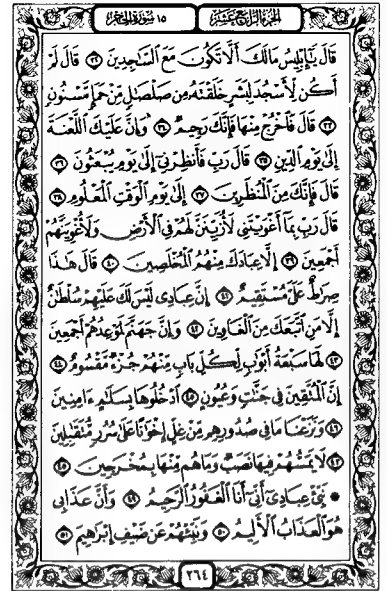 الجزء الرابع عشر ١٥ سورة الحجر
قَالَ يَٰٓإِبْلِيسُ مَالَكَ أَلَّا تَكُونَ مَعَ ٱلسَّٰجِدِينَ ٣٢ قَالَ لَمْ
أَكُن لِّأَسْجُدَ لِبَشَرٍ خَلَقْتَهُۥ مِن صَلْصَٰلٍ مِّنْ حَمَإٍ مَّسْنُونٍ
٣٣ قَالَ فَٱخْرُجْ مِنْهَا فَإِنَّكَ رَجِيمٌ ٣٤ وَإِنَّ عَلَيْكَ ٱللَّعْنَةَ
إِلَىٰ يَوْمِ ٱلدِّينِ ٣٥ قَالَ رَبِّ فَأَنظِرْنِىٓ إِلَىٰ يَوْمِ يُبْعَثُونَ ٣٦
قَالَ فَإِنَّكَ مِنَ ٱلْمُنظَرِينَ ٣٧ إِلَىٰ يَوْمِ ٱلْوَقْتِ ٱلْمَعْلُومِ ٣٨
قَالَ رَبِّ بِمَآ أَغْوَيْتَنِى لَأُزَيِّنَنَّ لَهُمْ فِى ٱلْأَرْضِ وَلَأُغْوِيَنَّهُمْ
أَجْمَعِينَ ٣٩ إِلَّا عِبَادَكَ مِنْهُمُ ٱلْمُخْلَصِينَ ٤٠ قَالَ هَٰذَا
صِرَٰطٌ عَلَىَّ مُسْتَقِيمٌ ٤١ إِنَّ عِبَادِى لَيْسَ لَكَ عَلَيْهِمْ سُلْطَٰنٌ
إِلَّا مَنِ ٱتَّبَعَكَ مِنَ ٱلْغَاوِينَ ٤٢ وَإِنَّ جَهَنَّمَ لَمَوْعِدُهُمْ أَجْمَعِينَ
٤٣ لَهَا سَبْعَةُ أَبْوَٰبٍ لِّكُلِّ بَابٍ مِّنْهُمْ جُزْءٌ مَّقْسُومٌ ٤٤
إِنَّ ٱلْمُتَّقِينَ فِى جَنَّٰتٍ وَعُيُونٍ ٤٥ ٱدْخُلُوهَا بِسَلَٰمٍ ءَامِنِينَ
٤٦ وَنَزَعْنَا مَا فِى صُدُورِهِم مِّنْ غِلٍّ إِخْوَٰنًا عَلَىٰ سُرُرٍ مُّتَقَٰبِلِينَ
٤٧ لَا يَمَسُّهُمْ فِيهَا نَصَبٌ وَمَا هُم مِّنْهَا بِمُخْرَجِينَ ٤٨
۞ نَبِّئْ عِبَادِىٓ أَنِّىٓ أَنَا ٱلْغَفُورُ ٱلرَّحِيمُ ٤٩ وَأَنَّ عَذَابِى
هُوَ ٱلْعَذَابُ ٱلْأَلِيمُ ٥٠ وَنَبِّئْهُمْ عَن ضَيْفِ إِبْرَٰهِيمَ ٥١
٢٦٤